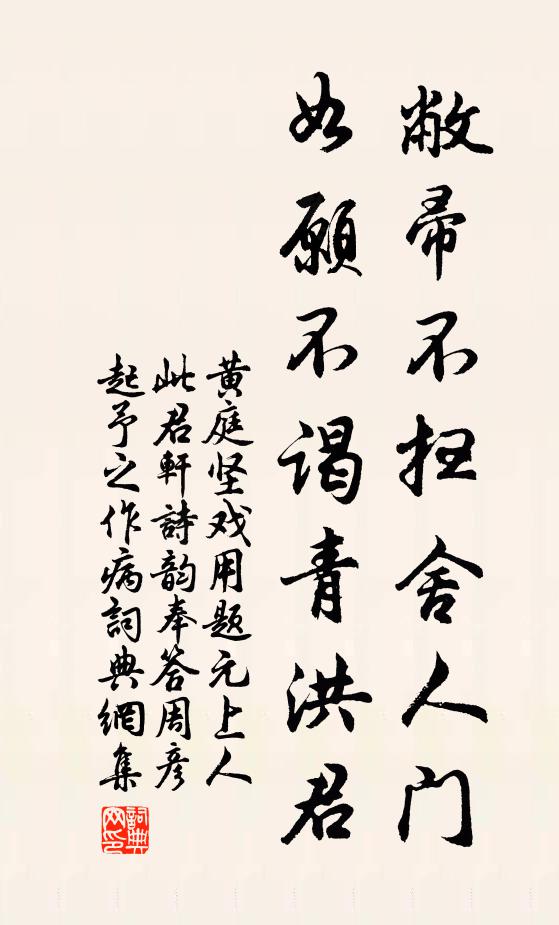 敝帚不扫舍人门
如願不谒青洪君
黄庭坚戏用题元上人
此君軒詩韵奉答周彦
起予之作病詞典網集
詞典网印